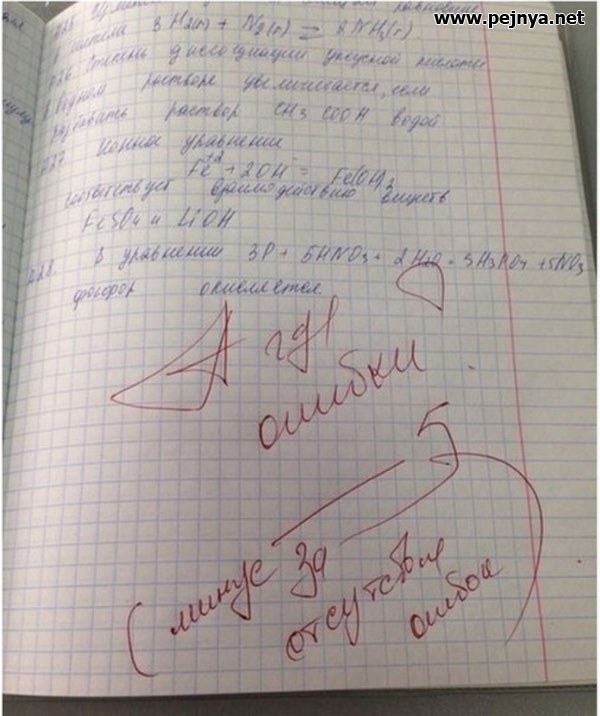 www.pejnya.net
системы 3 H₂(г) + N₂(г) ⇄ 2 NH₃(г)
Степень диссоциации уксусной кислоты
в водном растворе увеличивается, если
разбавить раствор CH₃COOH водой
Ионное уравнение
Fe⁺² + 2OH⁻ = Fe(OH)₂
соответствует взаимодействию веществ
FeSO₄ и LiOH
В уравнении 3P + 5HNO₃ + 2H₂O = 3H₃PO₄ + 5NO
фосфор окисляется
А где
ошибки ?
5-
(минус за
отсутствие
ошибок)